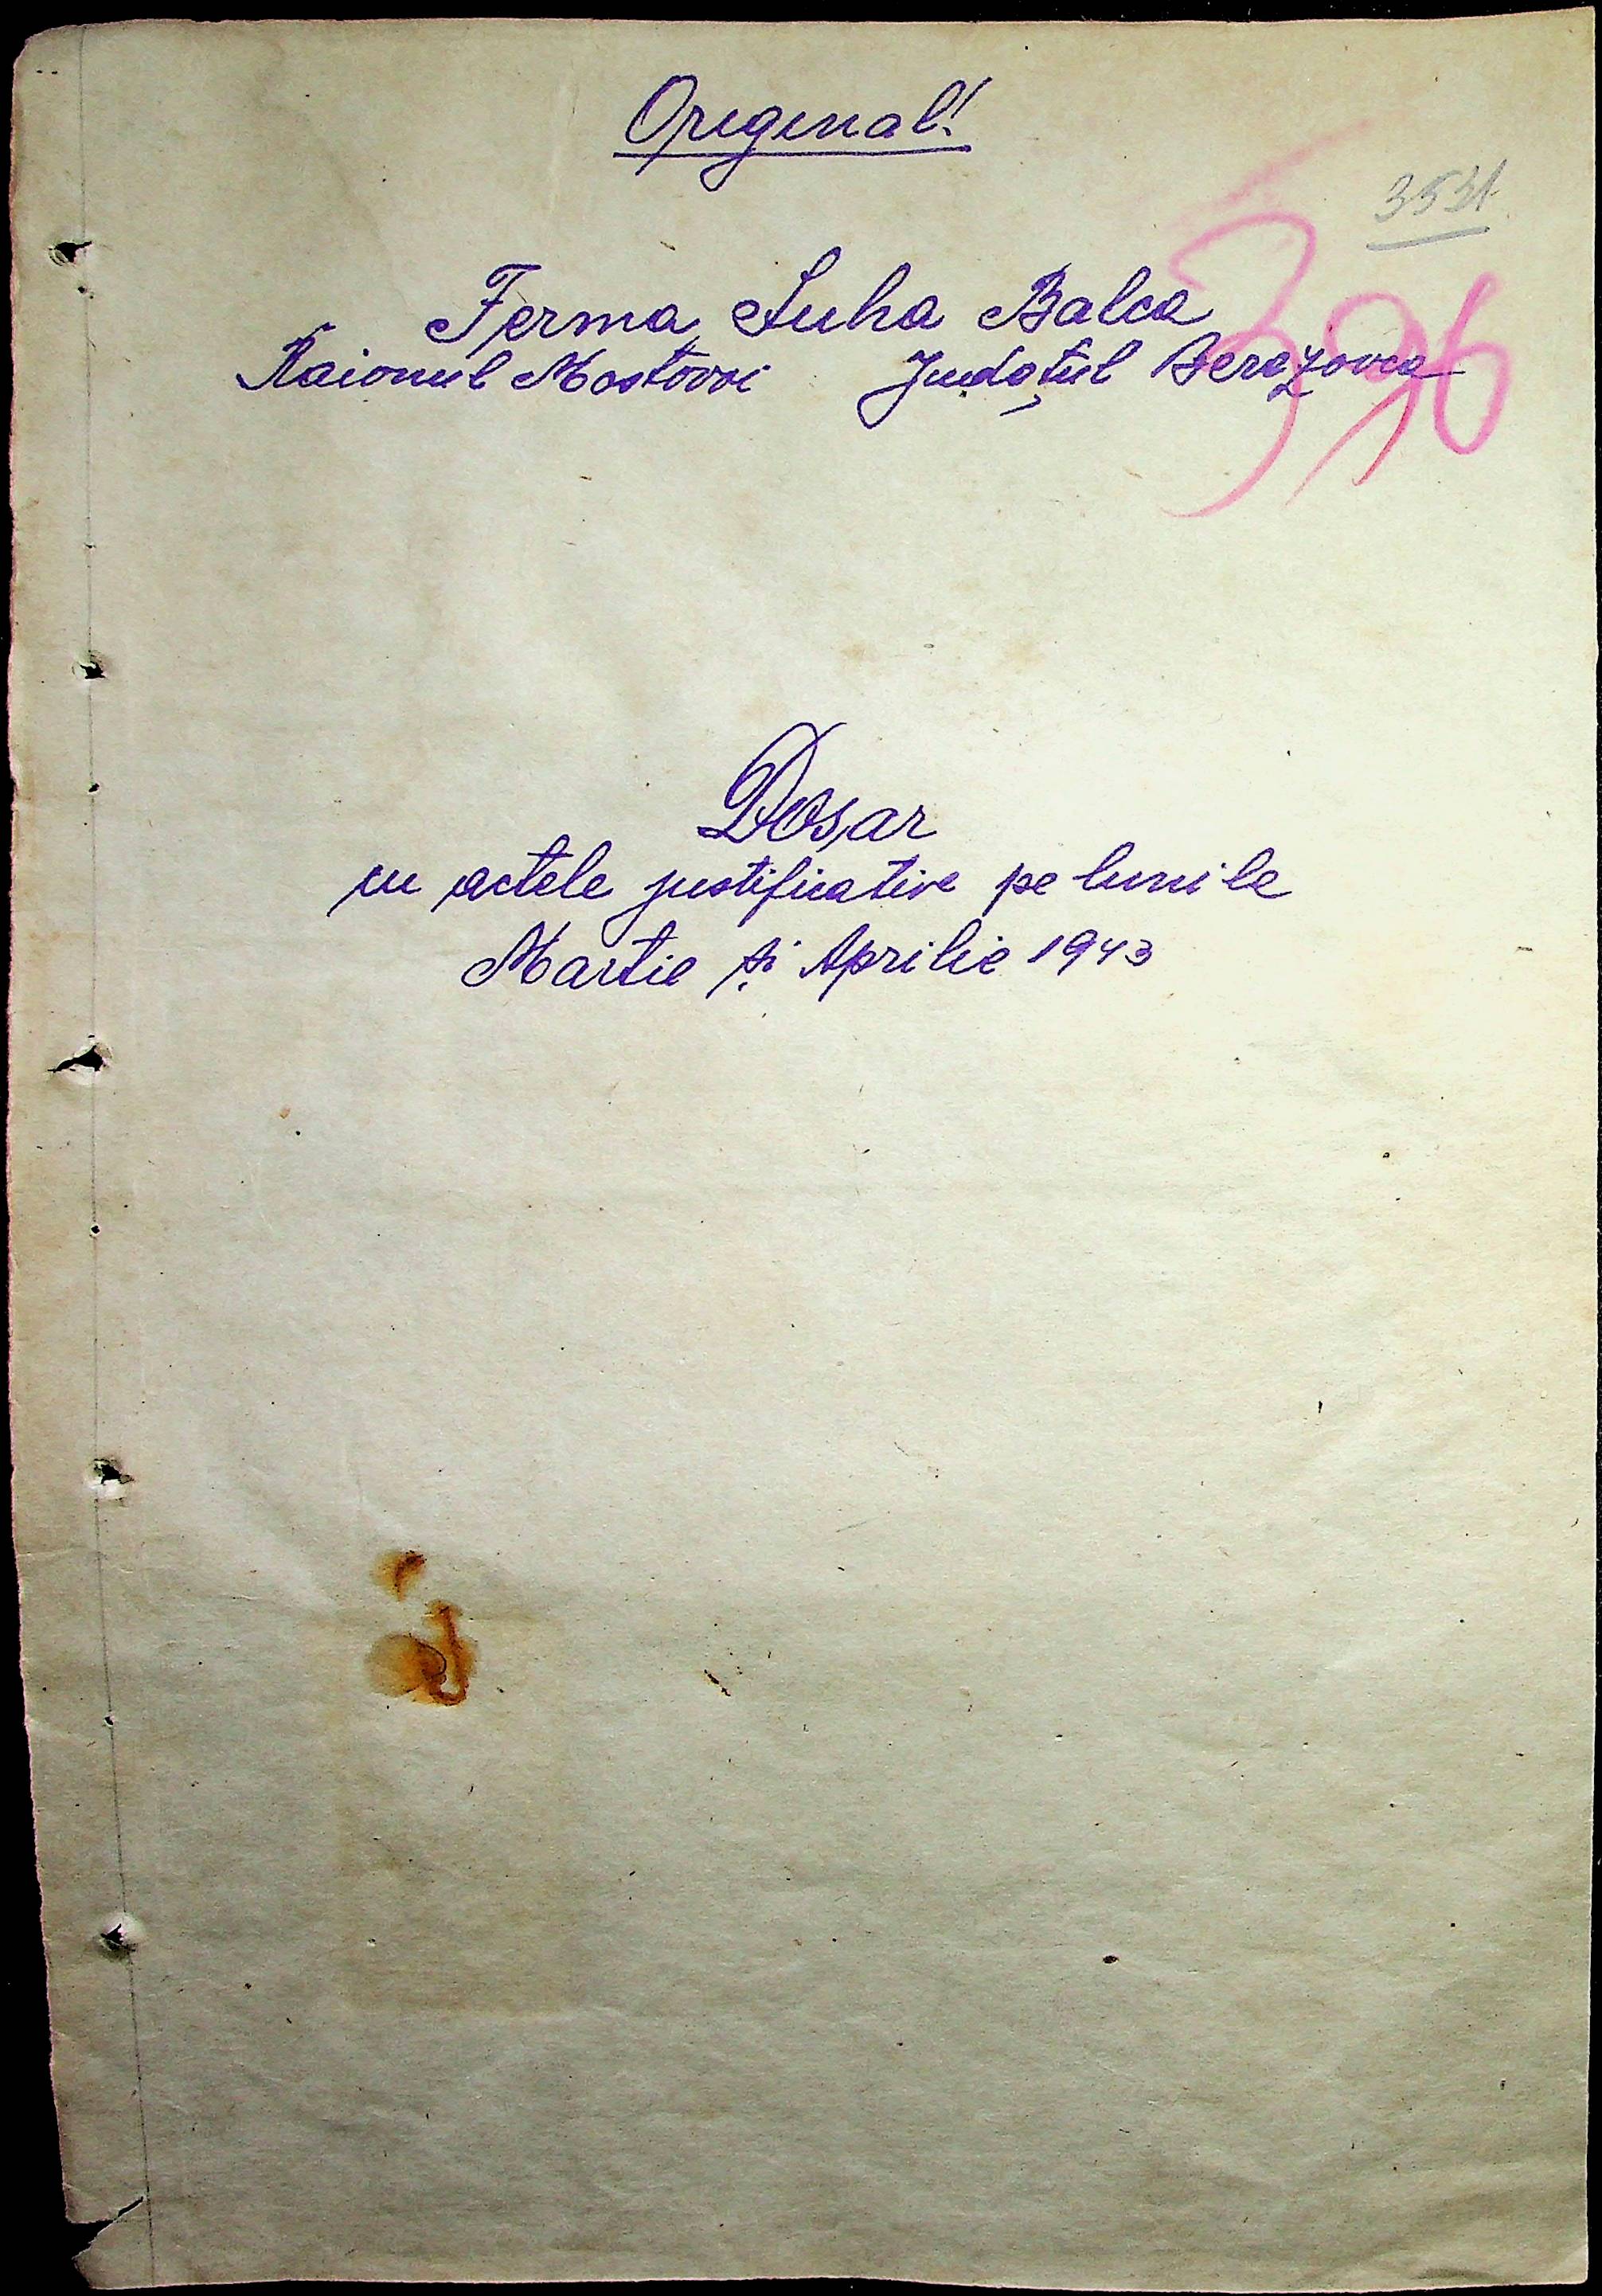 Original!
396
Ferma Suha Balca
Raionul Mostovoi Judeţul Berezovca
Dosar
cu actele justificative pe lunile
Martie și Aprilie 1943